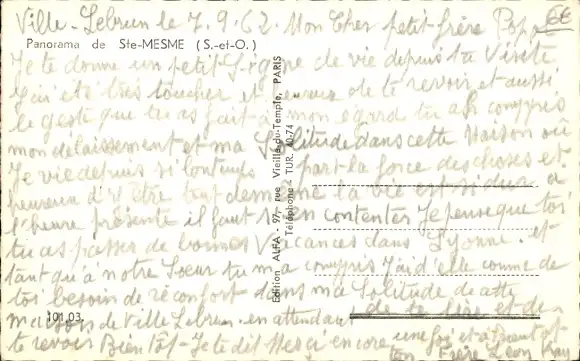 Ville-Lebrun le 7.9.62. Mon Cher petit frère
Panorama de Ste-MESME (S.-et-O.)
Je te donne un petit Signe de vie depuis ta Visite
J'ai été très toucher et de te revoir et aussi
le geste que tu as fait à mon égard tu as compris
mon délaissement et ma Solitude dans cette Maison où
Je vie depuis si longtemps part la force des choses et
heureux d'y être tout de même la vie est si dur à
l'heure présente il faut s'en contenter Je pense que toi
tu as passer de bonnes Vacances dans L'yonne. et
tant qu'à notre Soeur tu m'a compris J'ai d'elle comme de
toi besoin de réconfort dans ma Solitude de cette
101.03.
maison de Ville Lebrun. en attendant de la lire et de
te revoir Bientôt - Je te dit Merci encore une fois et
ton Frère
Edition ALFA - 97, rue Vieille-du-Temple, PARIS
Téléphone - TUR. 40-74